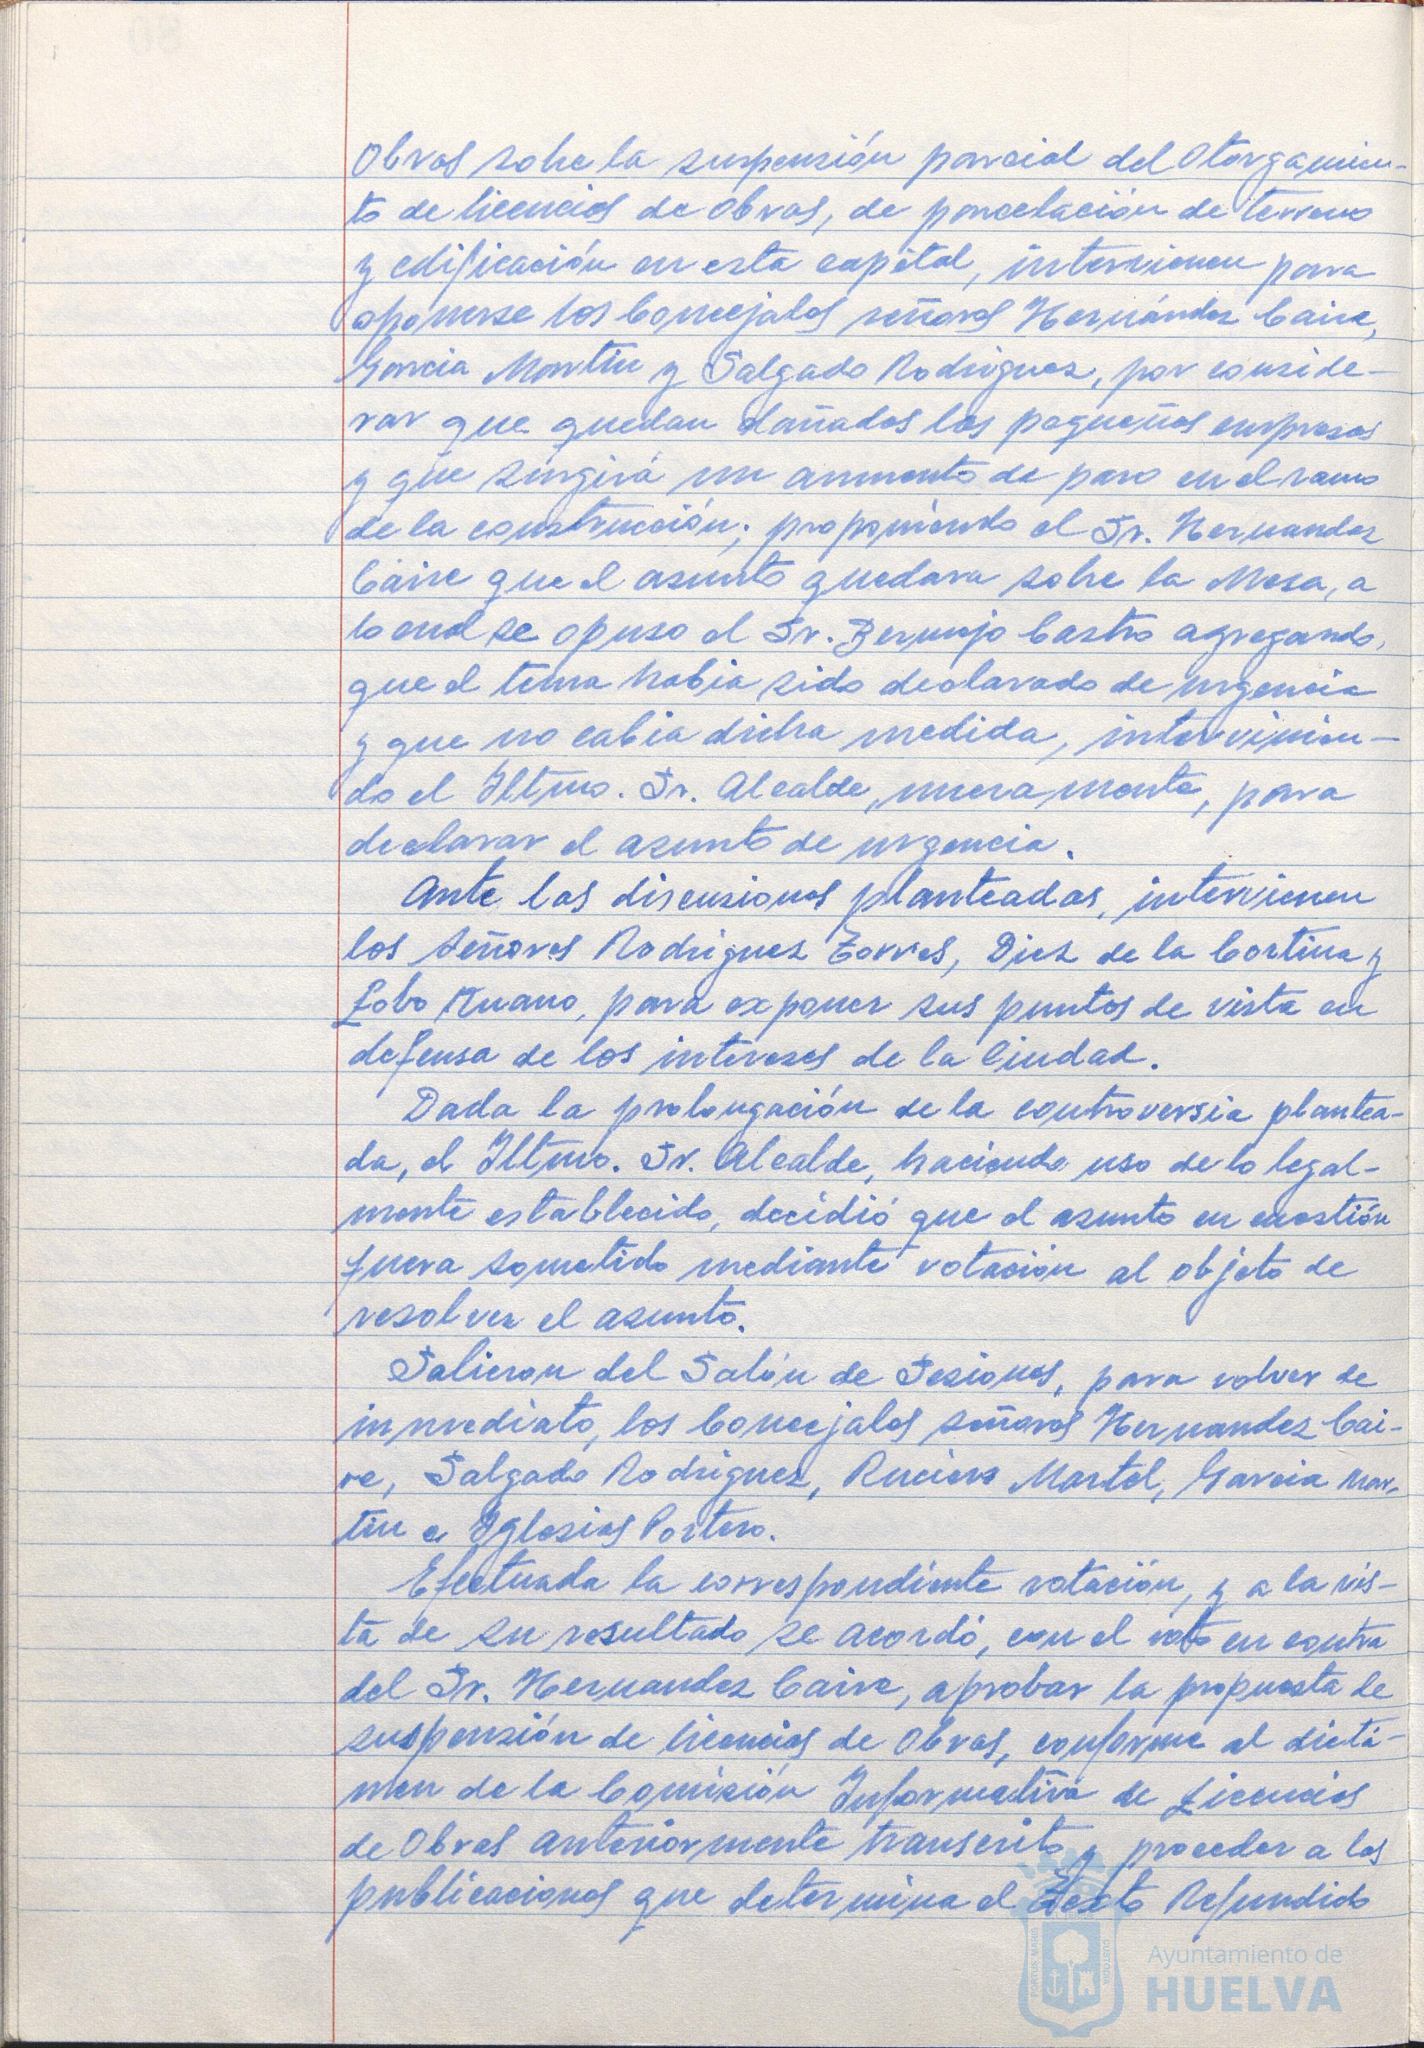 Obras sobre la suspensión parcial del Otorgamien-
to de licencias de Obras, de parcelación de terreno
y edificación en esta capital, intervienen para
oponerse los Concejales señores Hernández Caire,
Garcia Martin y Salgado Rodriguez, por conside-
rar que quedan dañadas las pequeñas empresas
y que surgirá un aumento de paro en el ramo
de la construcción; proponiendo el Sr. Hernandez
Caire que el asunto quedara sobre la Mesa, a
lo cual se opuso el Sr. Bermejo Castro agregando,
que el tema habia sido declarado de urgencia
y que no cabia dicha medida, intervinien-
do el Iltmo. Sr. Alcalde, nuevamente, para
declarar el asunto de urgencia.
Ante las discusiones planteadas, intervienen
los señores Rodriguez Torres, Diez de la Cortina y
Lobo Ruano, para exponer sus puntos de vista en
defensa de los intereses de la Ciudad.
Dada la prolongación de la controversia plantea-
da, el Iltmo. Sr. Alcalde, haciendo uso de lo legal-
mente establecido, decidió que el asunto en cuestión
fuera sometido mediante votación al objeto de
resolver el asunto.
Salieron del Salón de Sesiones, para volver de
inmediato, los Concejales señores Hernandez Cai-
re, Salgado Rodriguez, Martel, Garcia Mar-
tin e Iglesias Portero.
Efectuada la correspondiente votación, y a la vis-
ta de su resultado se acordó, con el voto en contra
del Sr. Hernandez Caire, aprobar la propuesta de
suspensión de licencias de Obras, conforme al dictá-
men de la Comisión Informativa de Licencias
de Obras anteriormente transcrito y proceder a las
publicaciones que determina el Texto Refundido
Ayuntamiento de
HUELVA